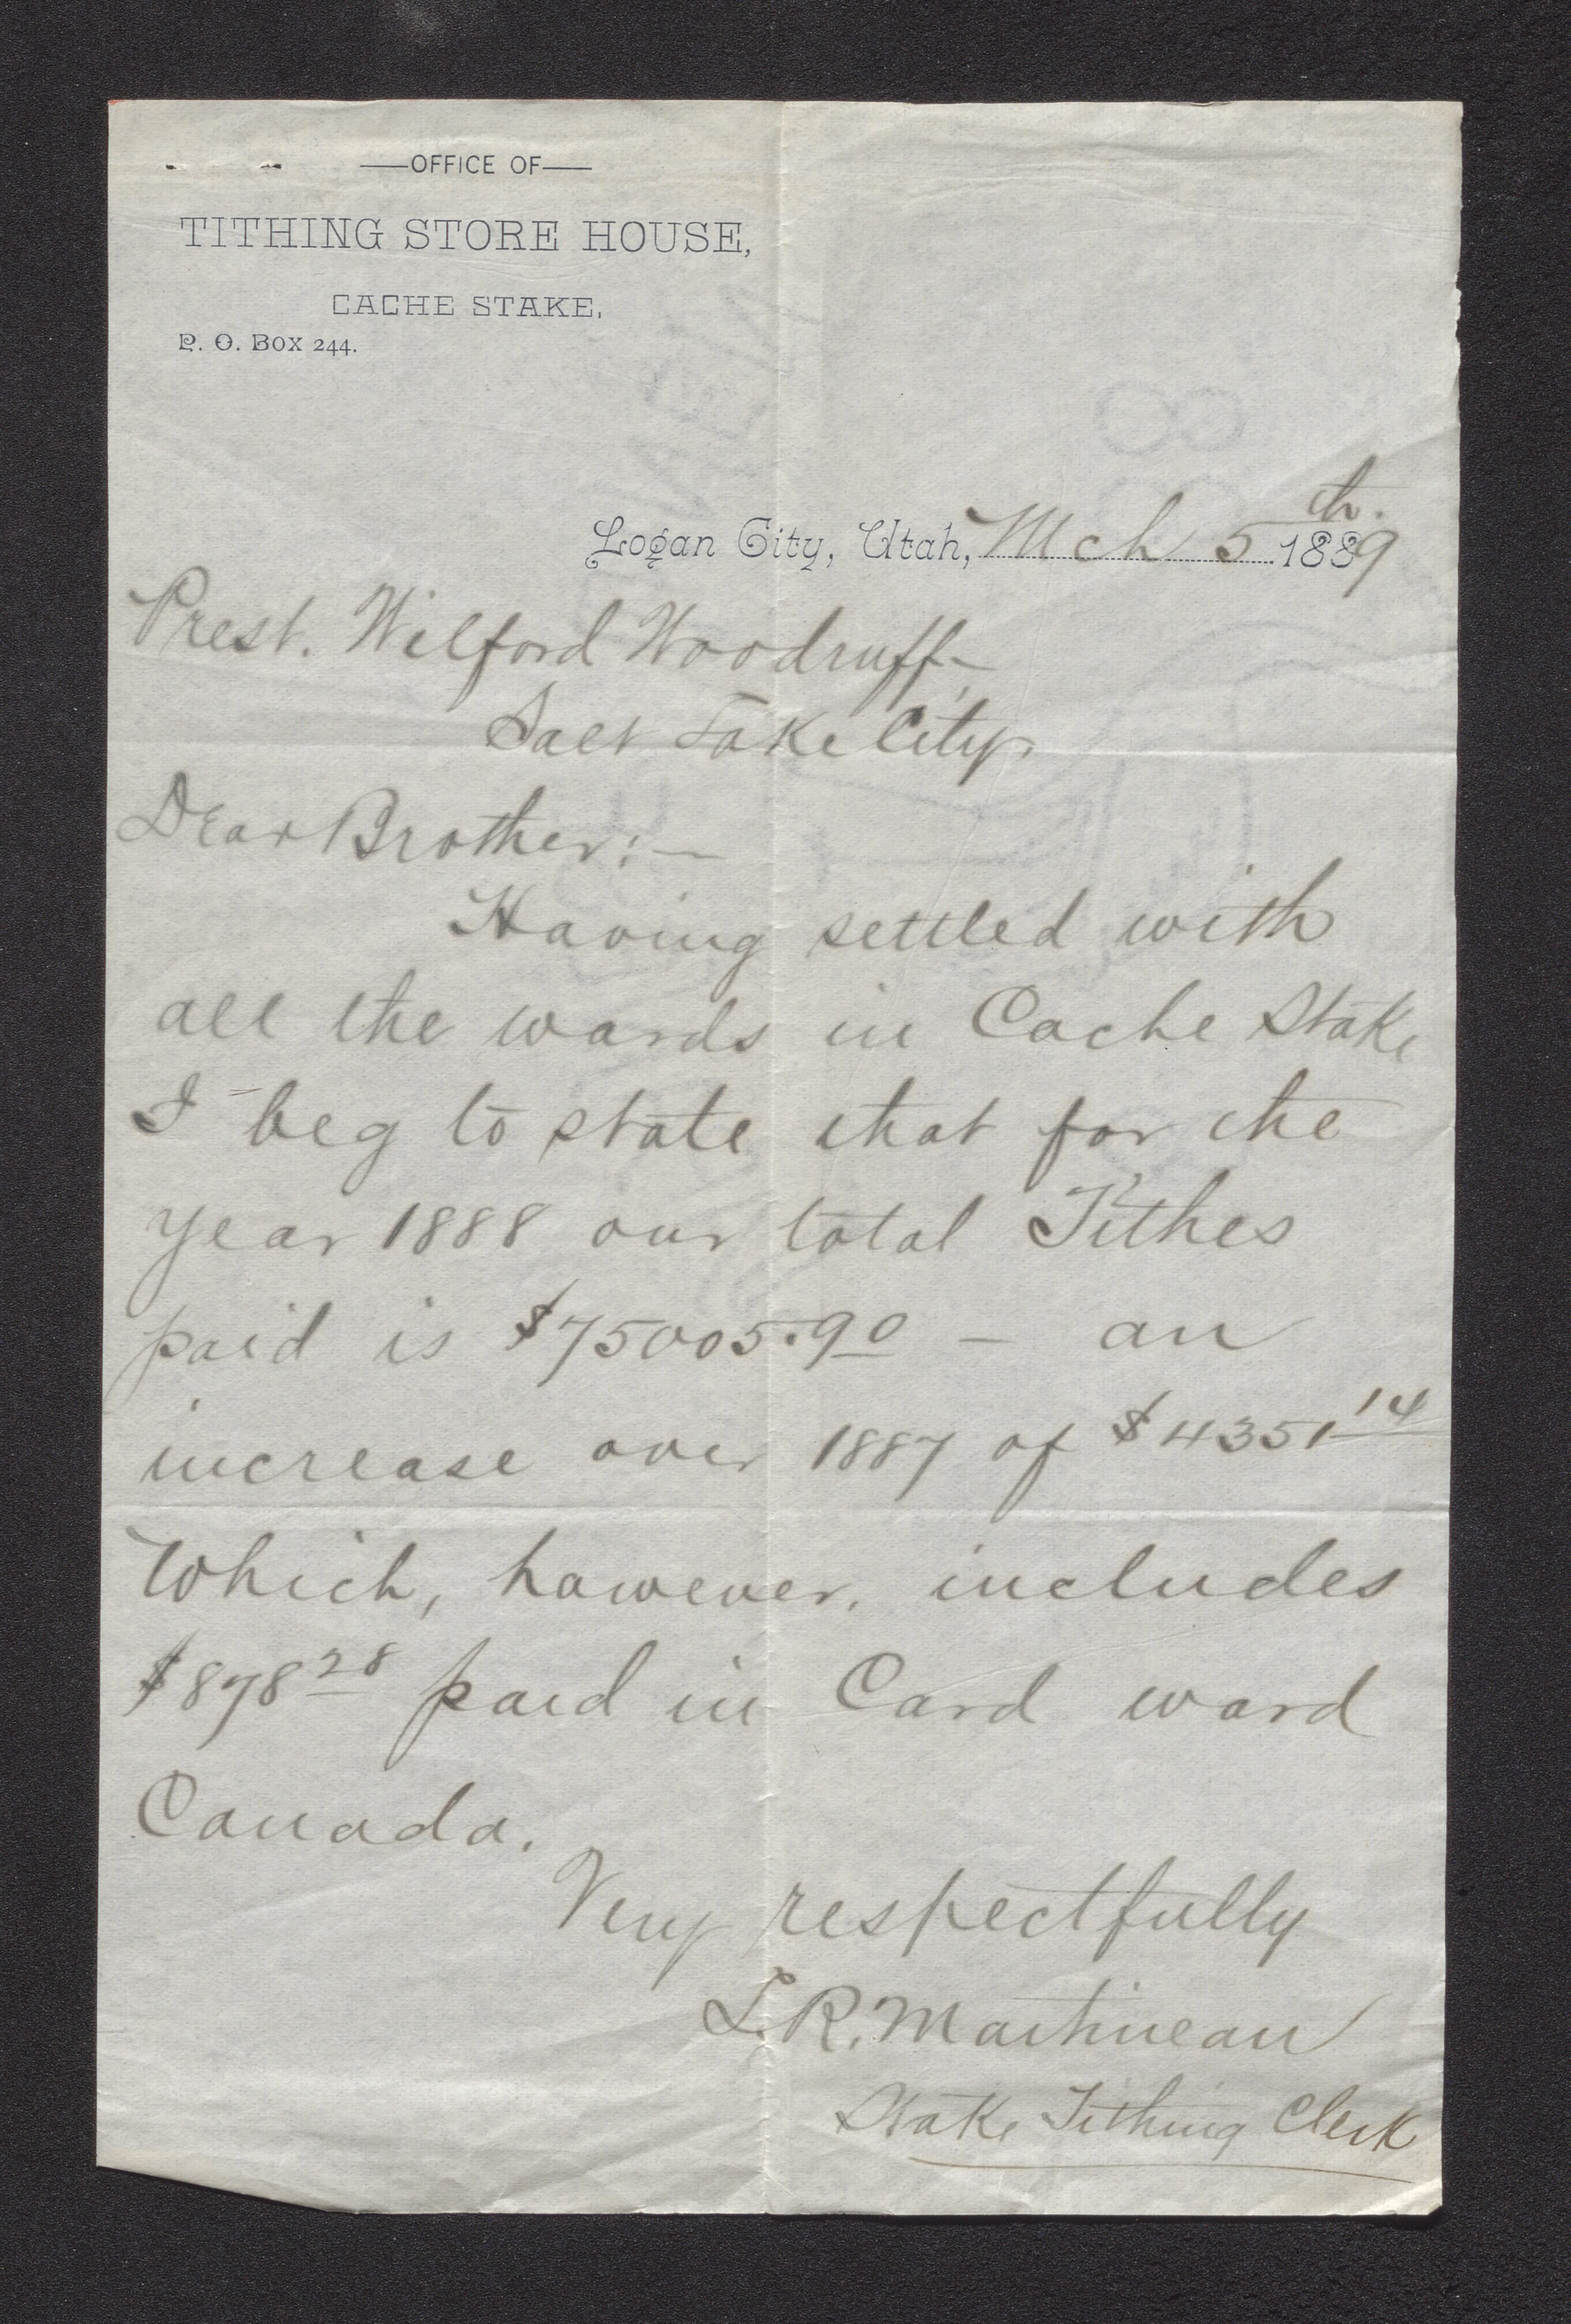 —OFFICE OF—
TITHING STORE HOUSE,
CACHE STAKE.
P. O. BOX 244.
Logan City, Utah, Mch 5th. 1889
Prest. Wilford Woodruff,
Salt Lake City.
Dear Brother:—
Having settled with
all the wards in Cache Stake
I beg to state that for the
year 1888 our total Tithes
paid is $75005.90 — an
increase over 1887 of $4351 14
Which, however, includes
$878 28 paid in Card ward
Canada.
Very respectfully
L. R. Martineau
Stake Tithing Clerk